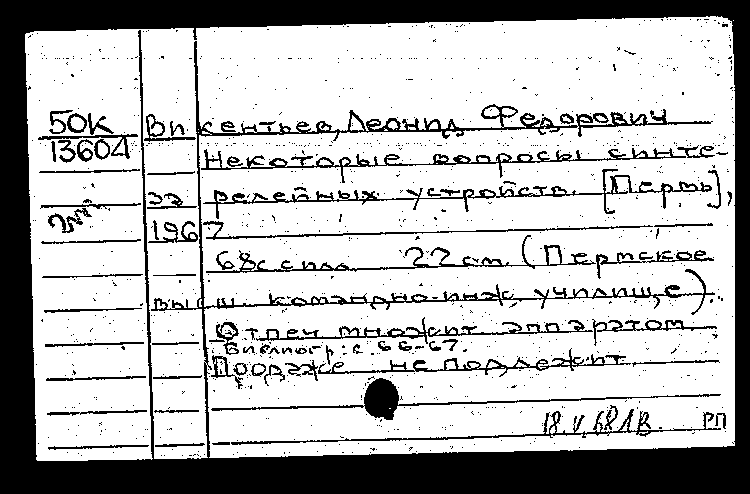 50К Викентьев, Леонид Федорович
13604 Некоторые вопросы синте-
за релейных устройств. [Пермь],
1967
68с с илл. 22 см. (Пермское
высш. командно-инж. училище).
Отпеч множит аппаратом
Библиогр: с. 66-67.
Продаже не подлежит
18.V.68 1В. РП